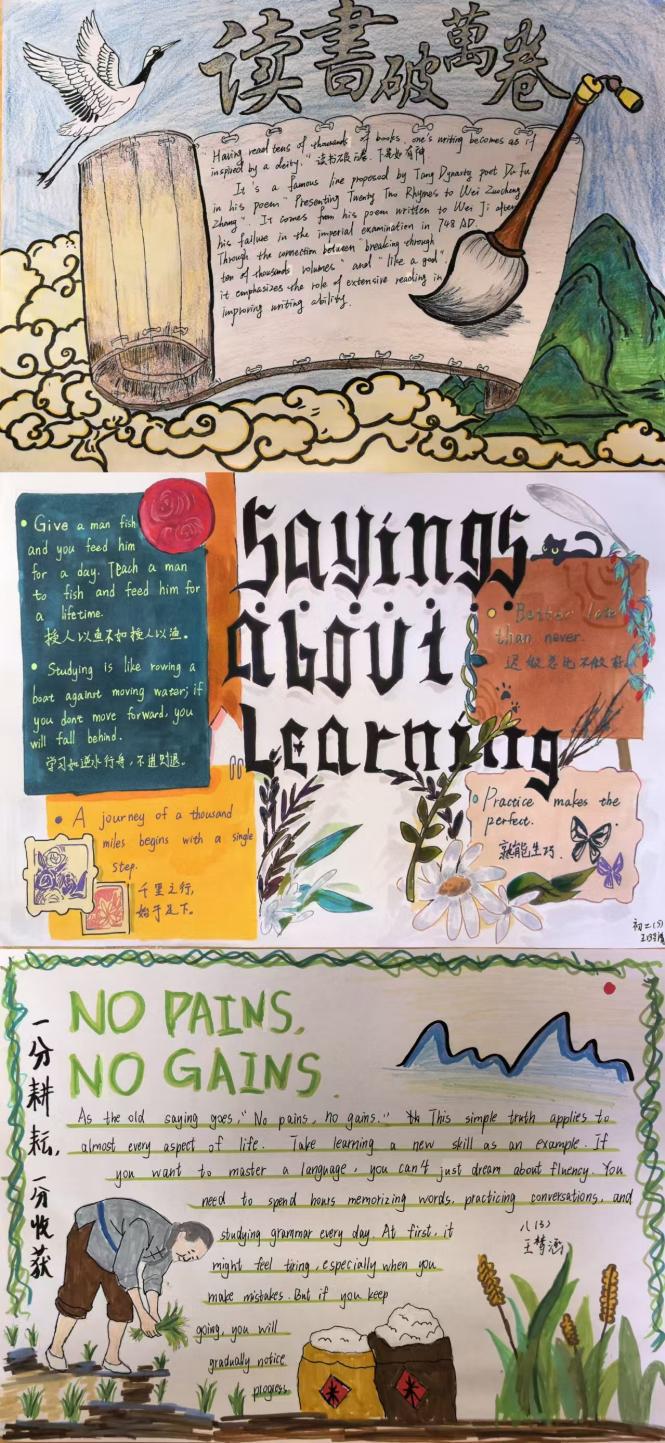 读書破萬卷
"Having read tens of thousands of books, one's writing becomes as if
inspired by a deity." 读书破万卷,下笔如有神
It's a famous line proposed by Tang Dynasty poet Du Fu
in his poem "Presenting Twenty Two Rhymes to Wei Zuocheng
Zhang". It comes from his poem written to Wei Ji after
his failure in the imperial examination in 748 AD.
Through the connection between "breaking through
ten of thousands volumes" and "like a god".
it emphasizes the role of extensive reading in
improving writing ability.
Sayings
About
Learning
Give a man fish
and you feed him
for a day. Teach a man
to fish and feed him for
a lifetime.
授人以鱼不如授人以渔。
Studying is like rowing a
boat against moving water; if
you dont move forward, you
will fall behind.
学习如逆水行舟,不进则退。
Better late
than never.
迟做总比不做好
A journey of a thousand
miles begins with a single
step.
千里之行,
始于足下。
Practice makes the
perfect.
熟能生巧.
初二(5)
NO PAINS,
NO GAINS.
一分耕耘,一分收获
As the old saying goes, "No pains, no gains." This simple truth applies to
almost every aspect of life. Take learning a new skill as an example. If
you want to master a language, you can't just dream about fluency. You
need to spend hours memorizing words, practicing conversations, and
studying grammar every day. At first, it
might feel tiring, especially when you
make mistakes. But if you keep
going, you will
gradually notice
progress
八(3)
王梦涵
米
米